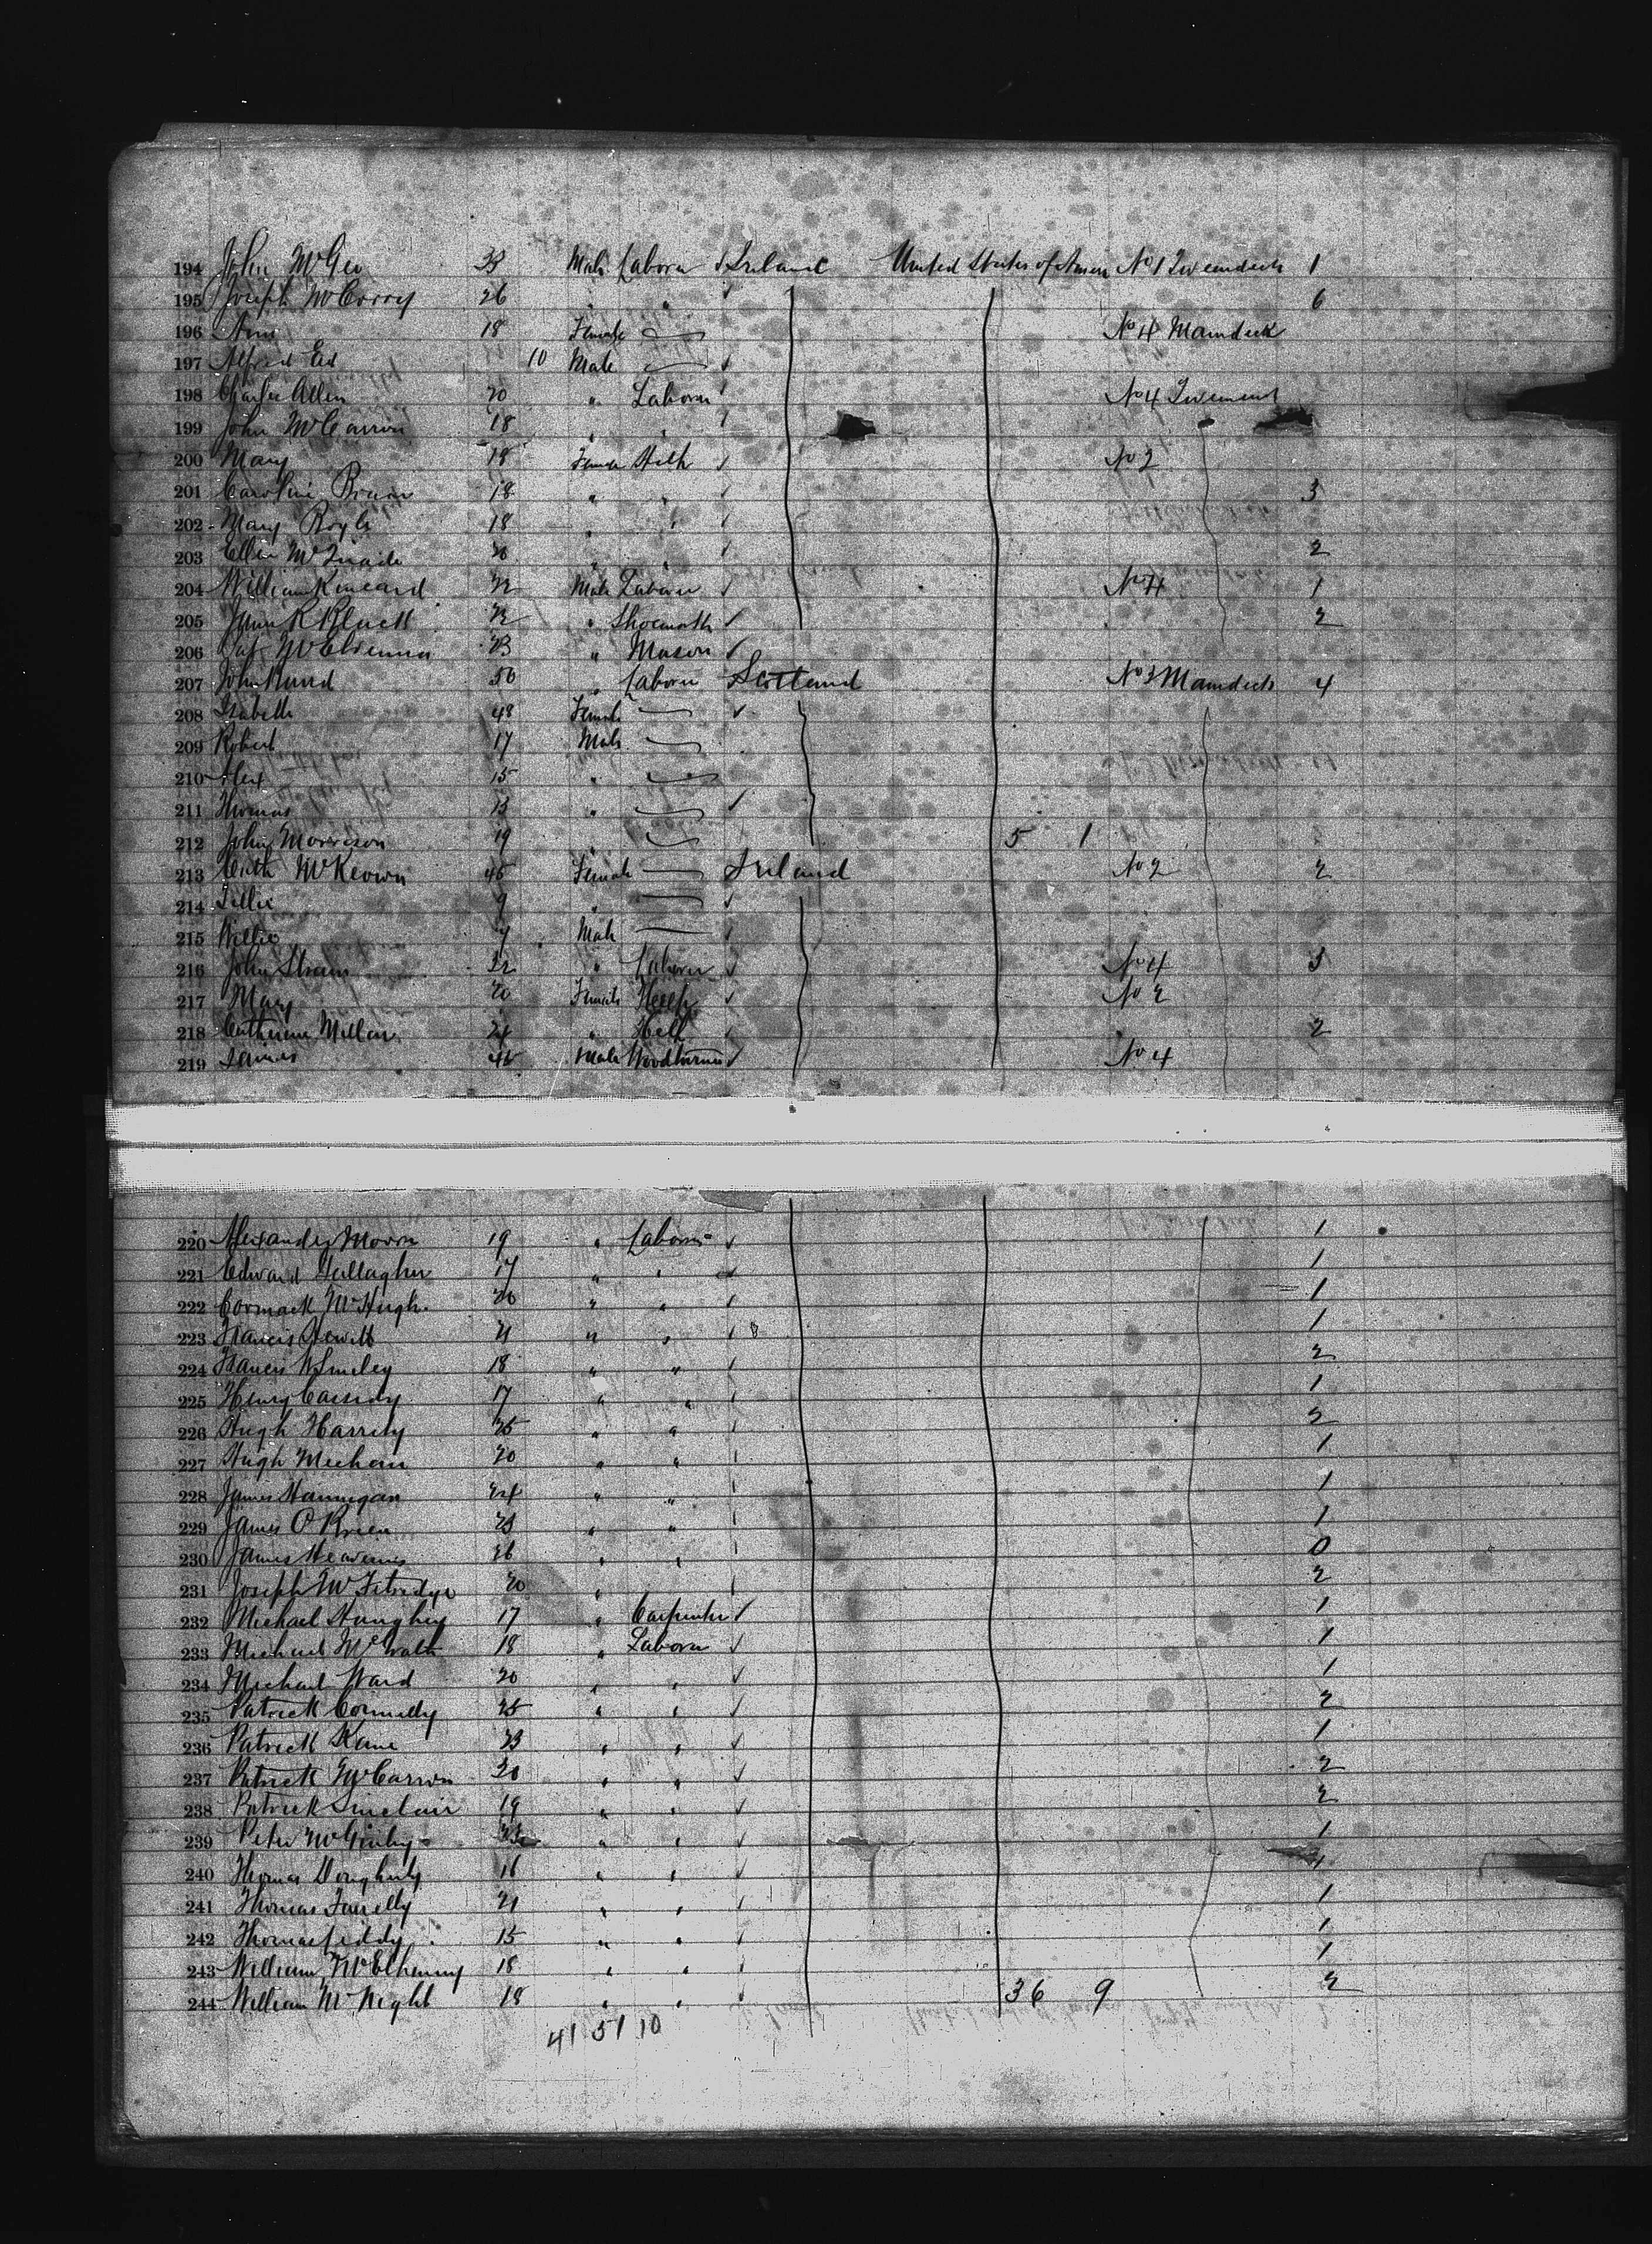 194 John McGee 33 Male Laborer Ireland United States of Amer No 1 Tweendeck 1
195 Joseph McCorry 26 " " 6
196 Ann 18 Female No 4 Maindeck
197 Alfred Ed 10 Male
198 Charles Allen 20 " Laborer No 4 Tweend
199 John McCarron 18 " "
200 Mary 18 Female Help No 2
201 Caroline 18 " " 3
202 Mary Boyle 18 " "
203 Ellen McQuade 20 " " 2
204 William Kincard 22 Male Laborer No 4 1
205 James R 22 " 2
206 Pat 23 " Mason
207 John 50 " Laborer Scotland No 3 Maindeck 4
208 Isabella 48 Female
209 Robert 17 Male
210 Alex 15 "
211 Thomas 13 "
212 John Morrison 19 " 5 1
213 McKeown 45 Female Ireland No 2 2
214 Tillie 9 "
215 Willie 7 Male
216 John Strain 22 " Laborer No 4 3
217 Mary 20 Female Help No 2
218 Catherine Millar 24 " Help 2
219 James 45 Male Woodturner No 4
220 Alexander Moore 19 " Laborer 1
221 Edward Gallagher 17 " " 1
222 Cormack McHugh 20 " " 1
223 Francis Hewitt 21 " " 1
224 Francis W Smiley 18 " " 2
225 Henry Cassidy 17 " " 1
226 Hugh Harrity 25 " " 2
227 Hugh Meehan 20 " " 1
228 James Hannigan 24 " " 1
229 James O Brien 23 " " 1
230 James 26 " " 0
231 Joseph McFetridge 20 " 2
232 Michael Haughey 17 " Carpenter 1
233 Michael McGrath 18 " Laborer 1
234 Michael Ward 20 " " 1
235 Patrick Connelly 25 " " 2
236 Patrick Kane 23 " " 1
237 Patrick McCarron 30 " " 2
238 Patrick Sinclair 19 " " 2
239 Peter McGinley " " 1
240 Thomas Dougherty 16 " "
241 Thomas Farrelly 21 " " 1
242 Thomas 15 " " 1
243 William McElhenny 18 " " 1
244 William McNight 18 " " 36 9 2
41 51 10